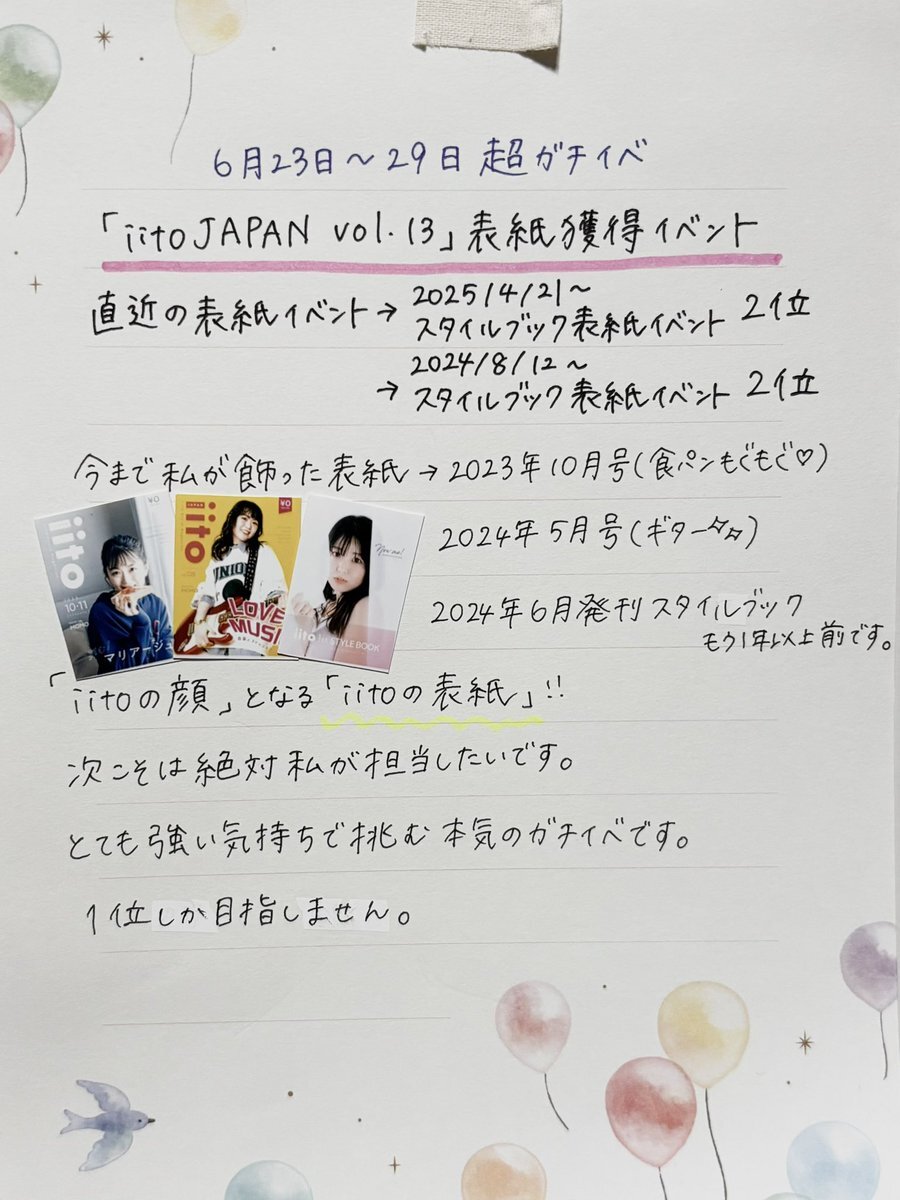 6月23日〜29日 超ガチイベ
「iito JAPAN vol.13」表紙獲得イベント
直近の表紙イベント→ 2025/4/21〜
スタイルブック表紙イベント 2位
→ 2024/8/12〜
スタイルブック表紙イベント 2位
今まで私が飾った表紙→2023年10月号(食パンもぐもぐ♡)
2024年5月号(ギター♪♪)
2024年6月発刊スタイルブック
もう1年以上前です。
iito
10・11
MOMO
マリアージュ
¥0
JAPAN
iito
¥0
UNION
LOVE
MUSI
iito STYLE BOOK
「iitoの顔」となる「iitoの表紙」!!
次こそは絶対私が担当したいです。
とても強い気持ちで挑む本気のガチイベです。
1位しか目指しません。